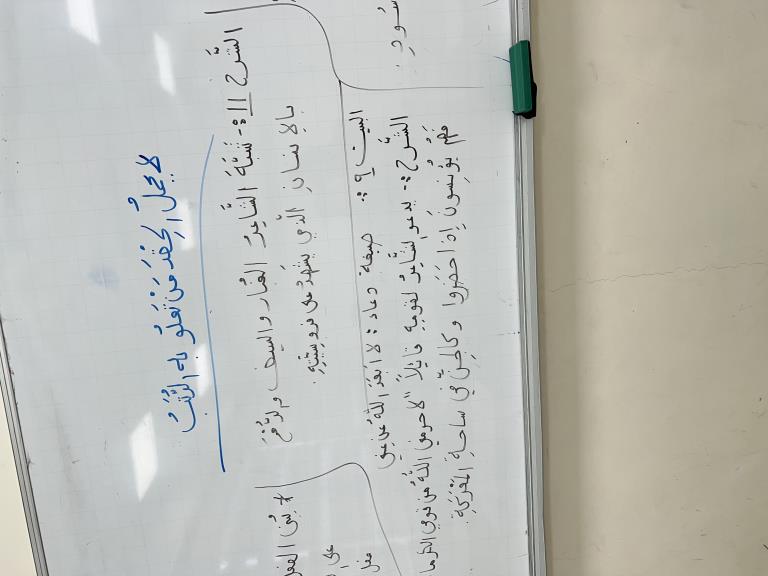 لا يَحمِلُ الحِقْدَ مَنْ تَعْلُو بِهِ الرُّتَبُ
الشَّرح 11:- شَبَّهَ الشَّاعِرُ الغُبار والسيف والرُّمْحَ
بالإنسانِ الَّذي يشهَدُ على فروسيَّتِهِ.
البيت 9:- صيغة دعاء: لا أبعَدَ اللهُ عن عيني
الشَّرح:- يدعو الشَّاعِرُ لقومِهِ قائلاً "لا حرمني اللهُ من قومي الكرما
فَهُمْ يُؤنِسُونَ إذا حَضَروا وكالجِنِّ في ساحةِ المَعْرَكَةِ.
سُودِ.
+ بُني الفعل
على
فعل